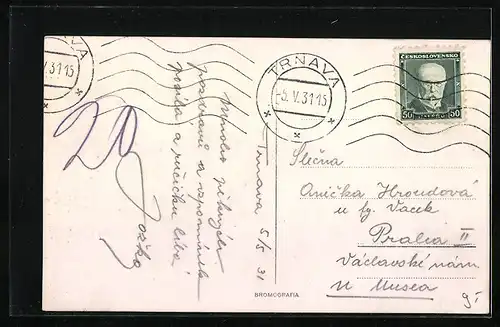 TRNAVA
-5.V.31-15
V.31-15
ČESKOSLOVENSKO
50 50
Trnava 5/5 31
Mnoho pěkných
pozdravů a vzpomínek
posílá a ručičku líbá
Jožko
Slečna
Anička Hroudová
u fy. Vacek
Praha II
Václavské nám
u Musea
BROMOGRAFIA